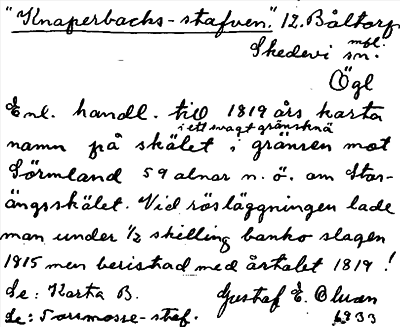 "Knaperbacks-stafven." 12. Båltorp
Skedevi sn. mpl.
Ögl
Enl. handl. till 1819 års karta
i ett svagt gränsknä
namn på skälet i gränsen mot
Sörmland 59 alnar n. ö. om Stor-
ängsskälet. Vid rösläggningen lade
man under 1/2 skilling banko slagen
1815 men beristad med årtalet 1819!
Se: Karta B. Gustaf E.
Se: -staf. 1933